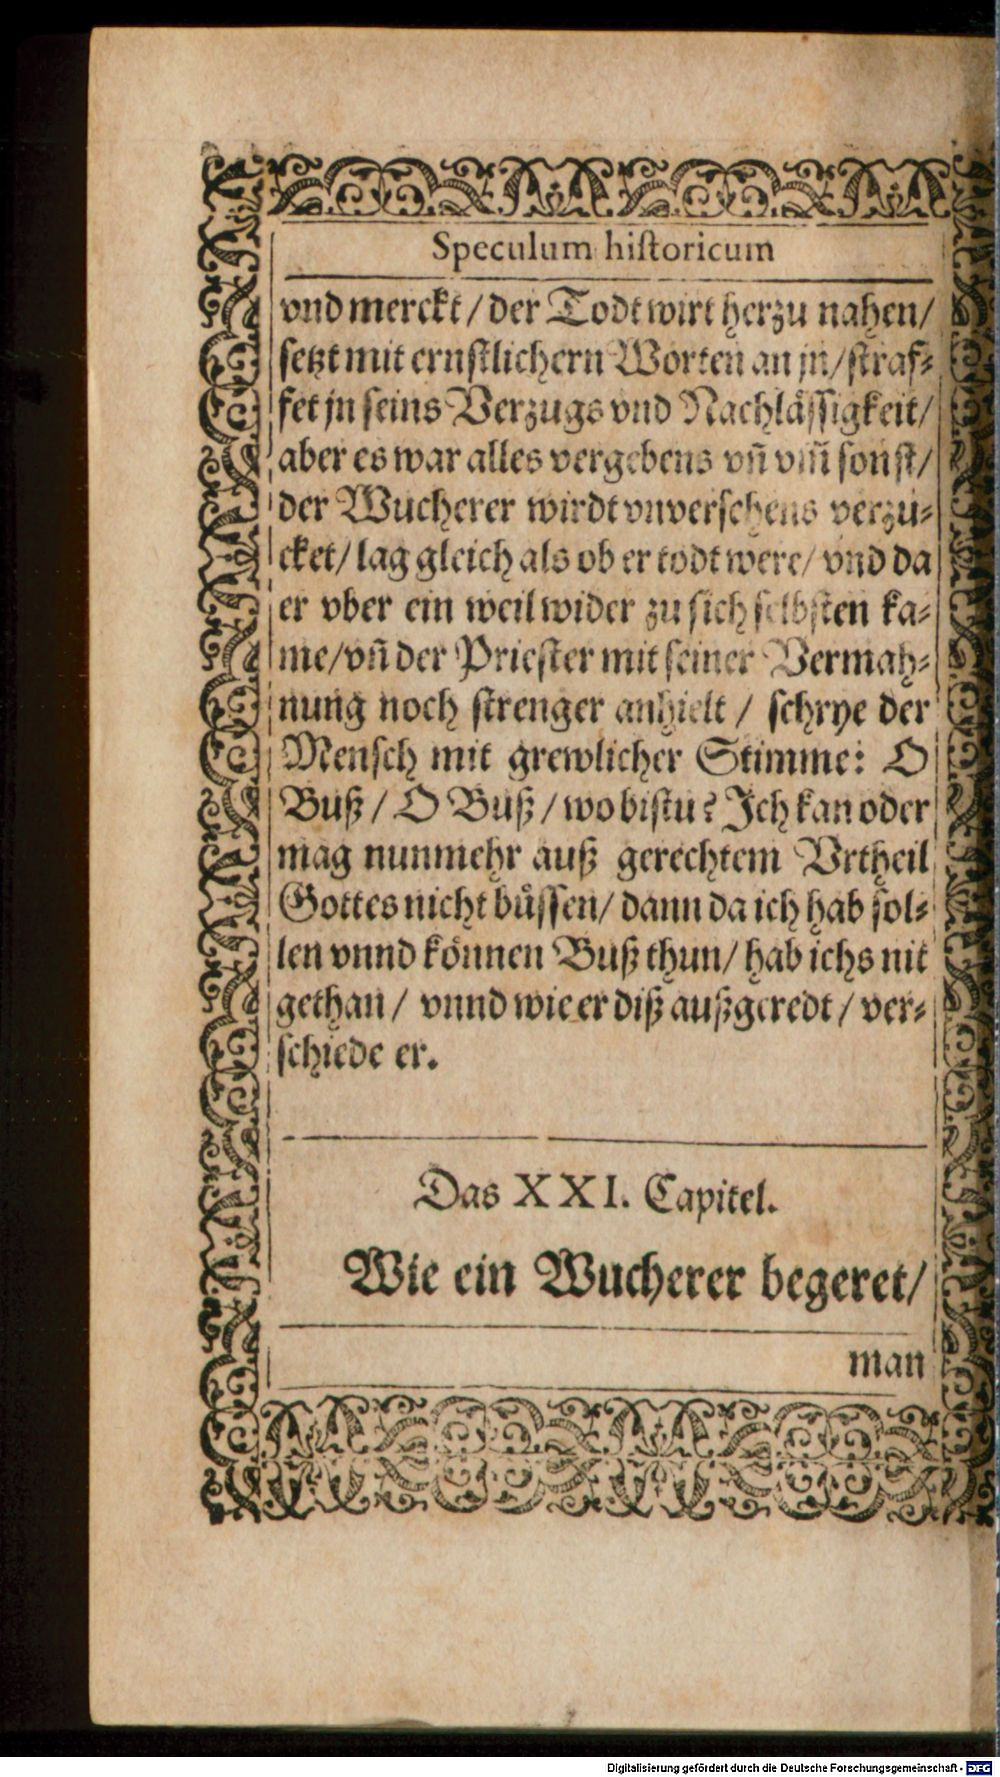 Speculum hiſtoricum
vnd merckt / der Todt wirt herzu nahen /
ſetzt mit ernſtlichern Worten an jn / ſtraf⸗
fet jn ſeins Verzugs vnd Nachläſſigkeit /
aber es war alles vergebens vñ vm̃ ſonſt /
der Wucherer wirdt vnverſehens verzu⸗
cket / lag gleich als ob er todt were / vnd da
er vber ein weil wider zu ſich ſelbſten ka⸗
me / vñ der Prieſter mit ſeiner Vermah⸗
nung noch ſtrenger anhielt / ſchrye der
Menſch mit grewlicher Stimme: O
Buß / O Buß / wo biſtu? Ich kan oder
mag nunmehr auß gerechtem Vrtheil
Gottes nicht büſſen / dann da ich hab ſol⸗
len vnnd können Buß thun / hab ichs nit
gethan / vnnd wie er diß außgeredt / ver⸗
ſchiede er.
Das XXI. Capitel.
Wie ein Wucherer begeret /
man
Digitalisierung gefördert durch die Deutsche Forschungsgemeinschaft - DFG